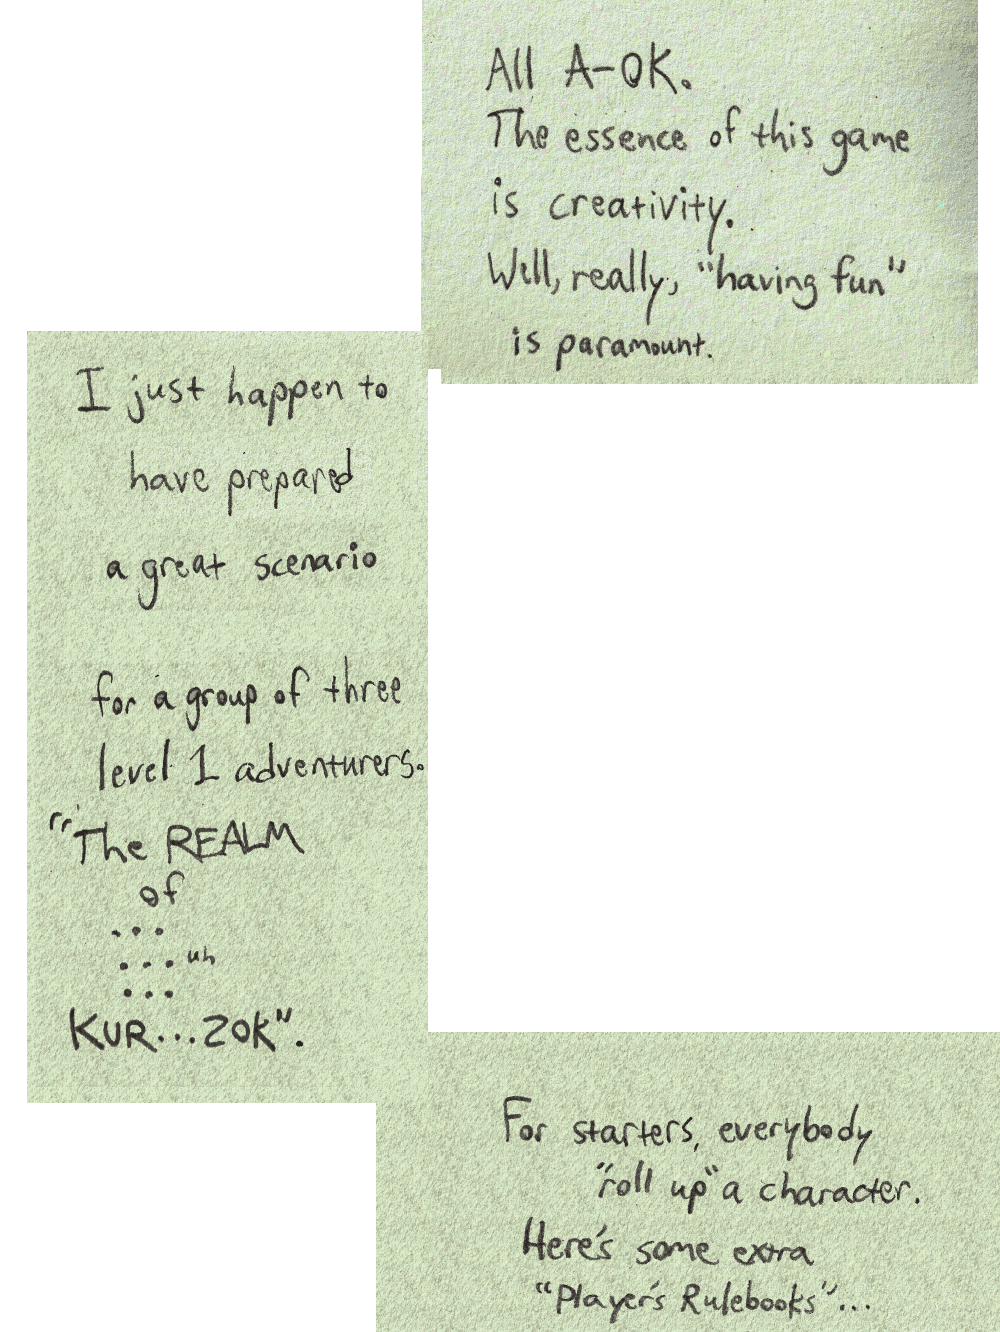 All A-OK.
The essence of this game
is creativity.
Well, really, "having fun"
is paramount.
I just happen to
have prepared
a great scenario
for a group of three
level 1 adventurers.
"The REALM
of
...
... uh
...
KUR...ZOK".
For starters, everybody
"roll up" a character.
Here's some extra
"Player's Rulebooks"...